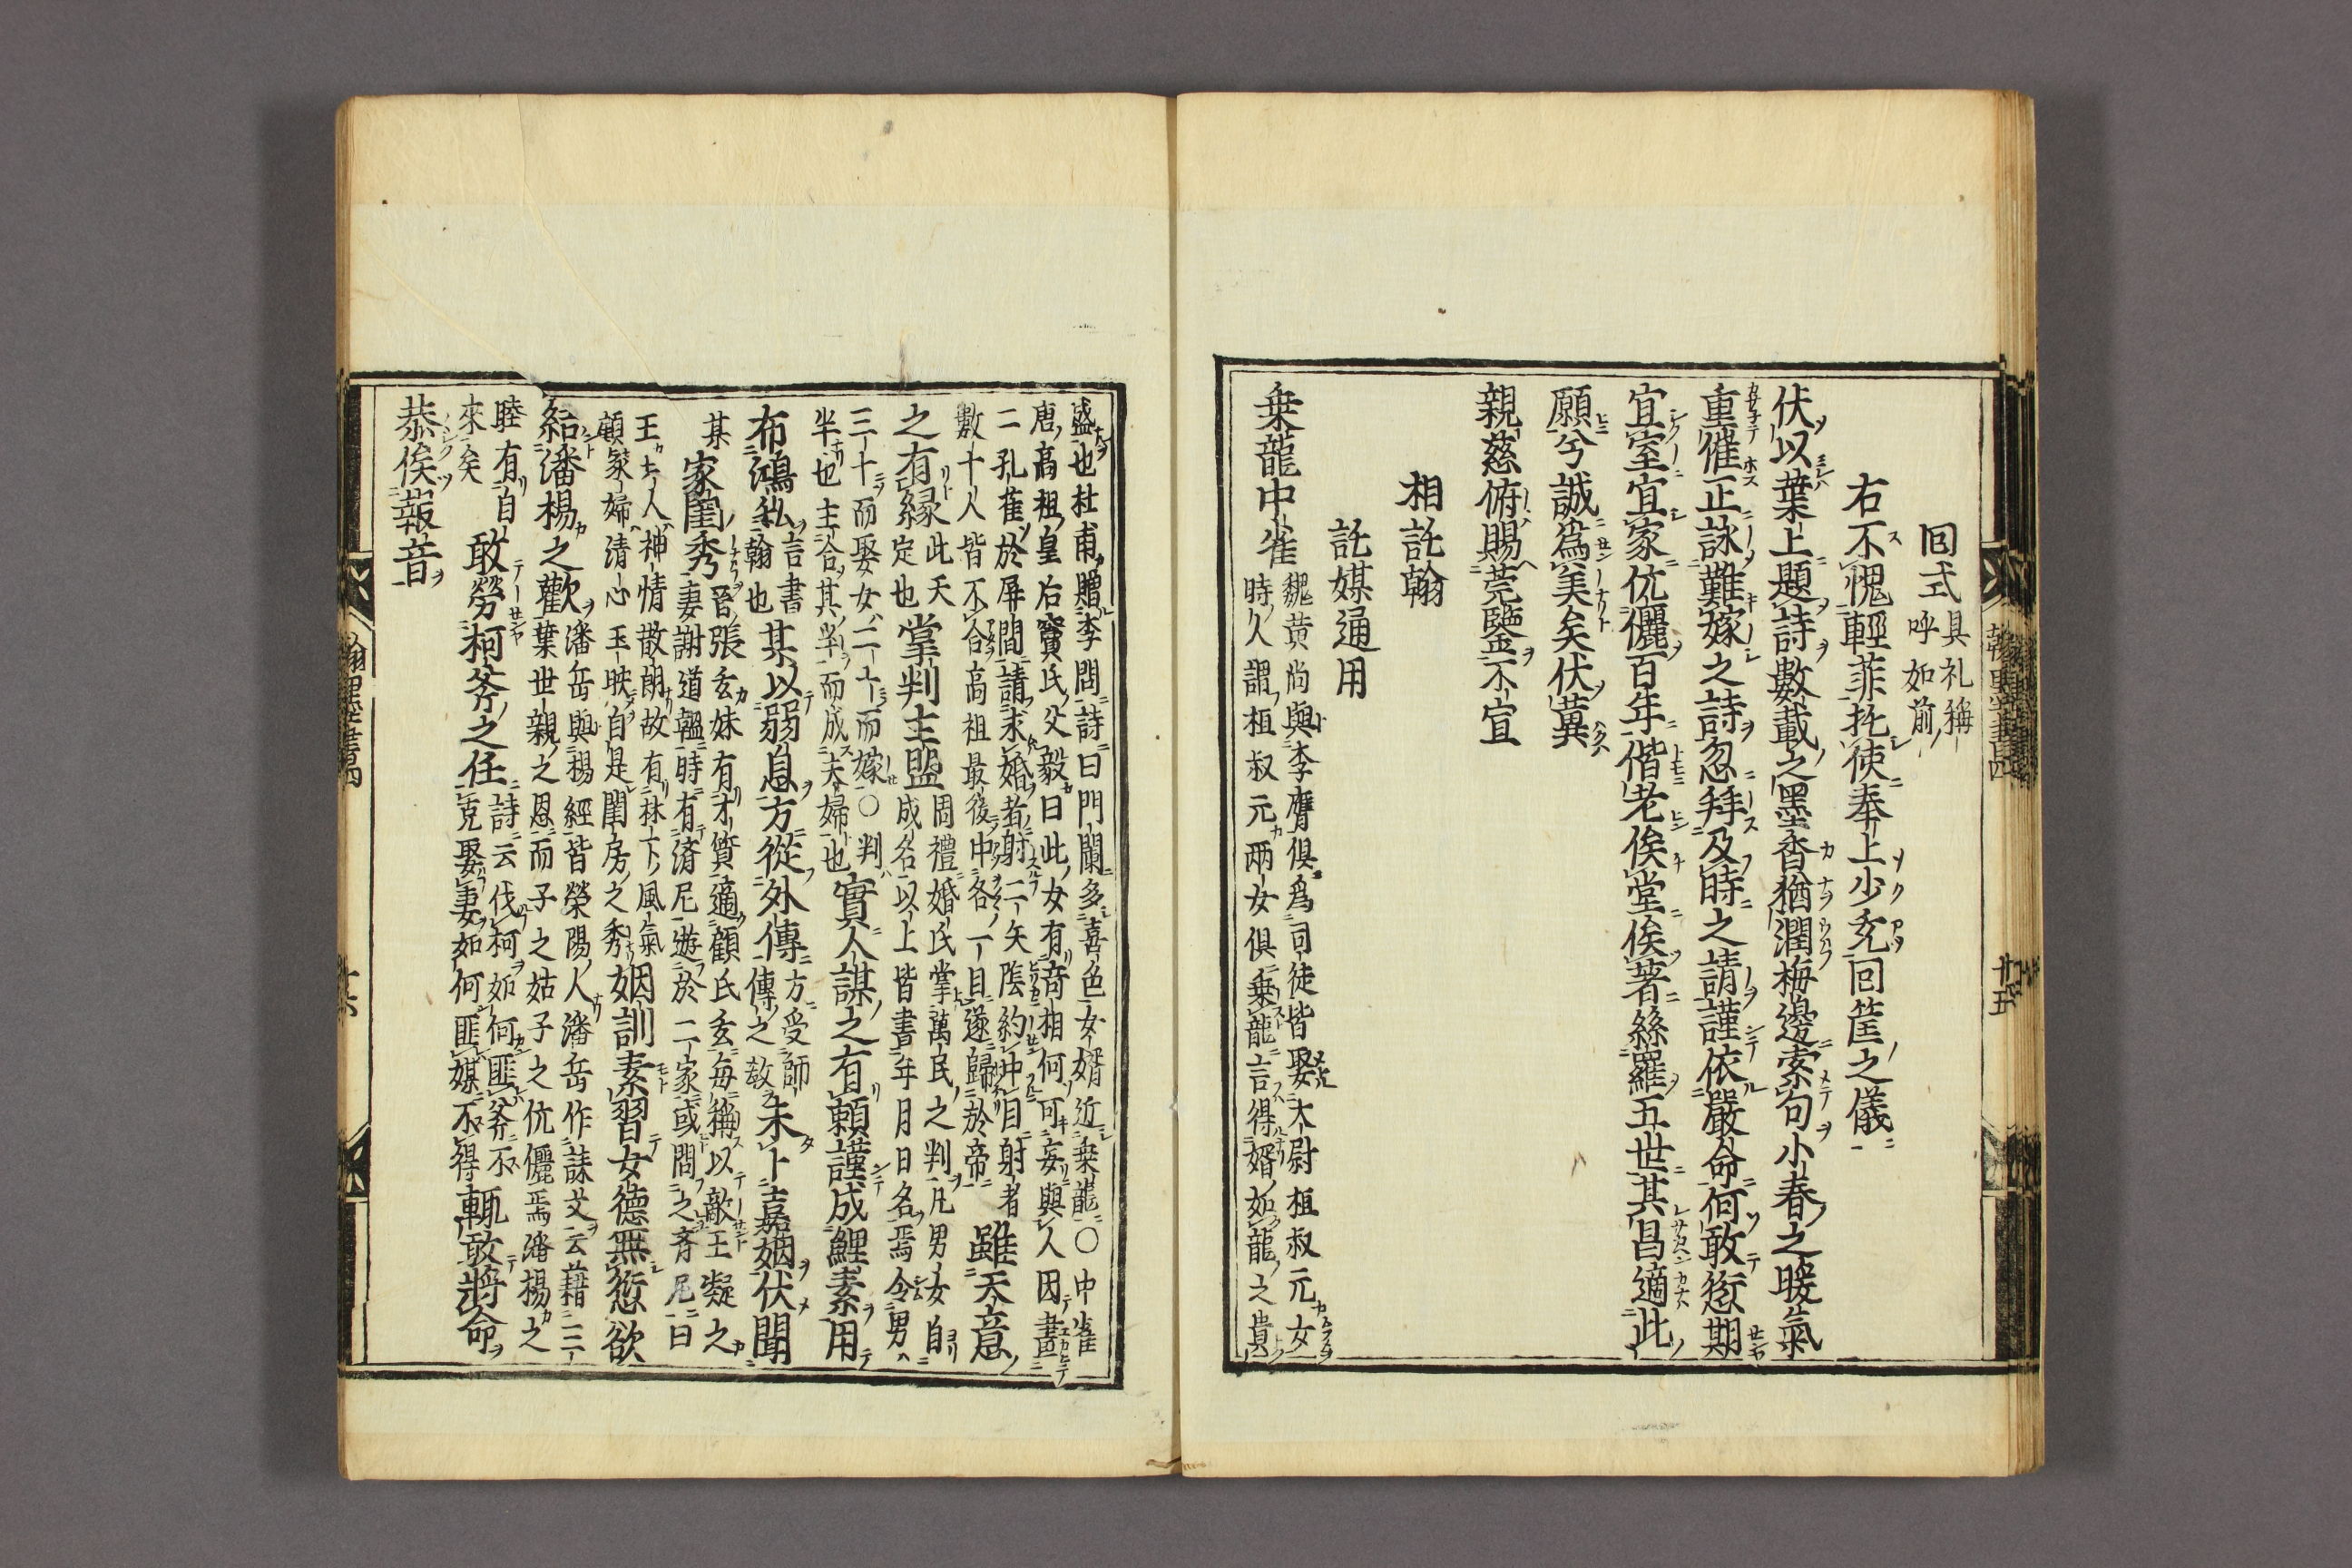 回式 具礼稱呼如前
右不愧輕菲托使奉上少充回筐之儀
伏以葉上題詩數載之墨香猶潤梅邊索句小春之暖氣
重催正詠難嫁之詩忽拜及時之請謹依嚴命何敢愆期
宜室宜家伉儷百年偕老俟堂俟著絲羅五世其昌適此
願兮誠爲美矣伏冀
親慈俯賜莞鑒不宣
相託翰
託媒通用
乗龍中雀 魏黄尚與李膺俱爲司徒皆娶太尉桓叔元女
時人謂桓叔元兩女俱乗龍言得婿如龍之貴
盛也杜甫贈李問詩曰門闌多喜色女婿近乗龍〇中雀
唐高祖皇后竇氏父毅曰此女有竒相何可妄與人因畫
二孔雀於屏間請求婚者射二矢陰約中目射者
數十人皆不合高祖最後中各一目遂歸於帝 雖天意
之有緣 此天定也 掌判主盟 周禮婚氏掌萬民之判凡男女自
成名以上皆書年月日名焉令男
三十而娶女二十而嫁〇判
半也主合其半而成夫婦也 實人謀之有賴謹成鯉素用
布鴻私 言書翰也 某以弱息方從外傳 方受師傳之敎 未卜嘉姻伏聞
某家閨秀 晉張玄妹有才質適顧氏玄每稱以敵王凝之
妻謝道韞時有済尼遊於二家或問之斉尼曰
王夫人神情散朗故有林下風氣
顧家婦清心玉映自是閨房之秀 姻訓素習女德無愆欲
結潘楊之歡 潘岳與楊經皆榮陽人潘岳作誄文云藉三
葉世親之恩而子之姑子之伉儷焉潘楊之
睦有自
來矣 敢勞柯斧之任 詩云伐柯如何匪斧不
克娶妻如何匪媒不得 輒敢將命
恭俟報音
翰墨書四
廿五
翰墨全書